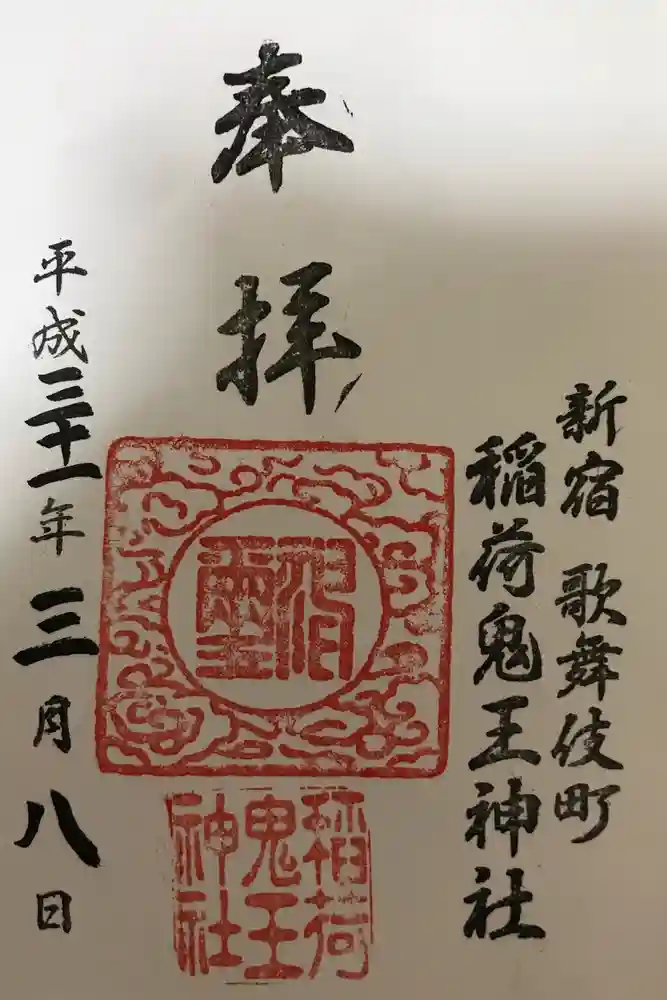 新宿 歌舞伎町
稲荷鬼王神社
奉拝
稲荷
鬼王
神社
平成三十一年三月八日